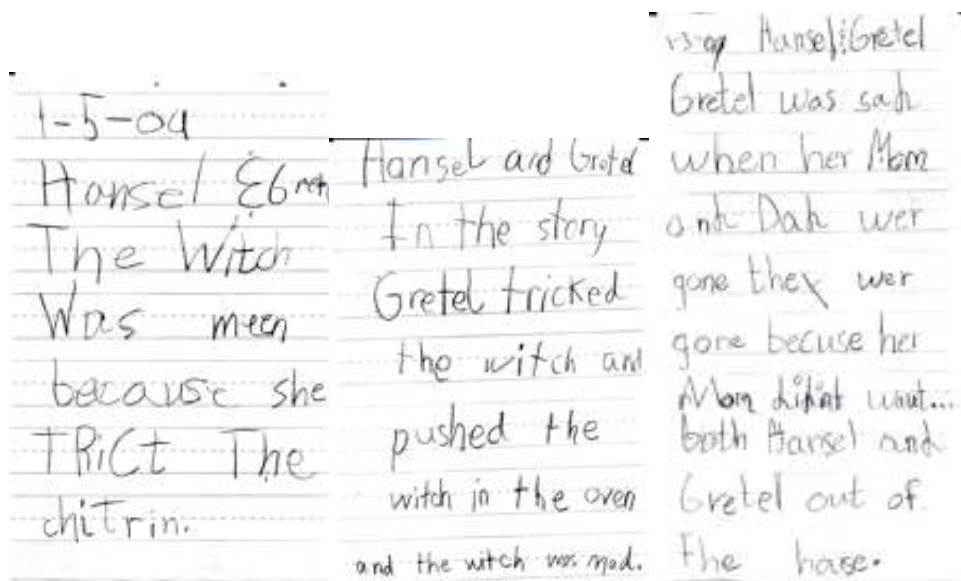 1-5-04
Hansel & Gretel
The Witch
Was meen
because she
TRiCt The
chiTrin.
Hansel and Gretel
In the story
Gretel tricked
the witch and
pushed the
witch in the oven
and the witch was mad.
Hansel & Gretel
Gretel was sah
when her Mom
anh Dah wer
gone they wer
gone becuse her
Mom hihint waut...
both Hansel and
Gretel out of
the hause.